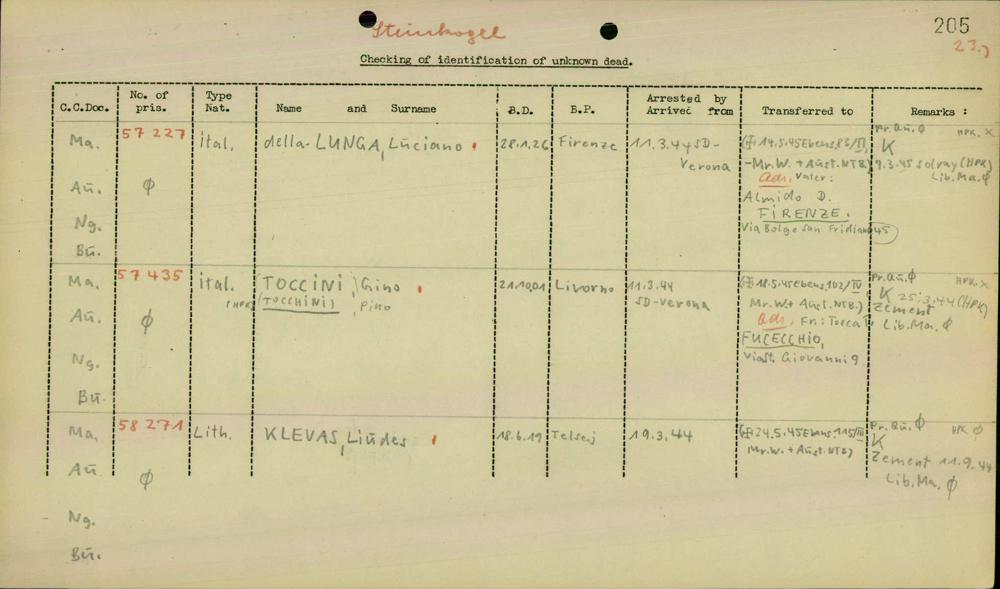 Steinkogel
205
23.)
Checking of identification of unknown dead.
C.C.Doc.
No. of pris.
Type Nat.
Name and Surname
B.D.
B.P.
Arrested by
Arrived from
Transferred to
Remarks :
Ma.
57 227
ital.
della-LUNGA, Luciano
28.1.26
Firenze
11.3.44 SD-
Verona
14.5.45 Ebens,
-Mr.W. + Aust. NTB.)
adr. Vater:
Almido D.
FIRENZE.
Via Bolgo San Fridiano 45
Pr. Qu. ϕ
HPK. X
K
9.3.45 Solvay (HPK)
Lib. Ma. ϕ
Au. ϕ
Ng.
Bu.
Ma.
57 435
ital.
TOCCINI, Gino
(HPK) (TOCCHINI), Pino
21.10.01
Livorno
11.3.44
SD-Verona
18.5.45 Ebens, 102/IV
Mr.W. + Aust. NTB.)
adr. Fr.: Tosca T.
FUCECCHIO,
Via St. Giovanni 9
Pr. Qu. ϕ
HPK. X
K 25.3.44 (HPK)
Zement
Lib. Ma. ϕ
Au. ϕ
Ng.
Bu.
Ma.
58 271
Lith.
KLEVAS, Liudes
18.6.19
Telsej
19.3.44
24.5.45 Ebens, 115/III
Mr.W. + Aust. NTB)
Pr. Qu. ϕ
HPK ϕ
K
Zement 11.9.44
Lib. Ma. ϕ
Au. ϕ
Ng.
Bu.